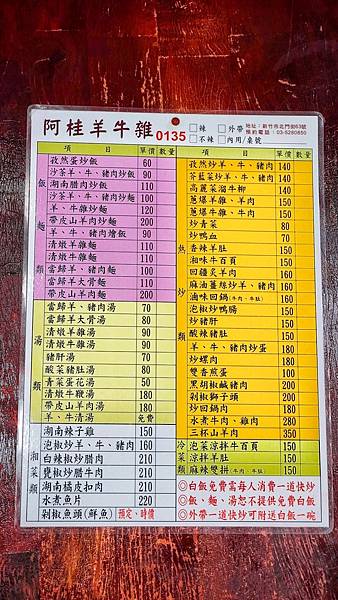 阿桂羊牛雜 0135
□辣 □外帶
□不辣 □內用/桌號
地址：新竹市北門街63號
預約電話：03-5280850
項目 單價 數量
飯麵類
孜然蛋炒飯 60
沙茶羊、牛、豬肉炒飯 90
湖南腊肉炒飯 110
沙茶羊、牛、豬肉炒麵 100
羊、牛雜炒麵 120
帶皮山羊肉炒麵 200
羊、牛、豬肉燴飯 90
清燉羊雜麵 110
清燉牛雜麵 110
當歸羊、豬肉麵 100
當歸羊大骨麵 110
帶皮山羊肉麵 200
湯類
當歸羊、豬肉湯 70
當歸羊大骨湯 80
清燉羊雜湯 80
清燉牛雜湯 80
豬肝湯 70
酸菜豬肚湯 80
青菜蛋花湯 50
清燉牛鞭湯 180
帶皮山羊肉湯 180
羊、牛清湯 免費
湘菜類
湖南辣子雞 150
泡椒炒羊、牛、豬肉 160
白辣椒炒腊肉 210
甕椒炒腊牛肉 210
湖南橘皮扣肉 210
水煮魚片 220
剁椒魚頭(鮮魚) 預定、時價
項目 單價 數量
熱炒類
孜然炒羊、牛、豬肉 140
芥藍菜炒羊、牛、豬肉 140
高麗菜溜牛柳 140
蔥爆羊雜、羊肉 150
蔥爆牛雜、牛肉 150
炒青菜 80
炒鴨血 70
香辣羊肚 150
湘味牛百頁 150
回疆炙羊肉 160
麻油薑絲炒羊、豬肉 160
滷味回鍋(牛肉、牛肚) 160
泡椒炒鴨腸 150
炒豬肝 150
酸辣豬肚 150
羊、牛、豬肉炒蛋 180
炒螺肉 180
雙香煎蛋 100
黑胡椒鹹豬肉 200
剁椒獅子頭 200
炒回鍋肉 180
水煮牛肉、雞肉 280
三杯山羊肉 300
冷菜類
泡菜涼拌牛百頁 150
涼拌羊肚 150
麻辣雙拼(牛肉、牛肚) 150
◎白飯免費需每人消費一道快炒
◎飯、麵、湯恕不提供免費白飯
◎外帶一道快炒可附送白飯一碗